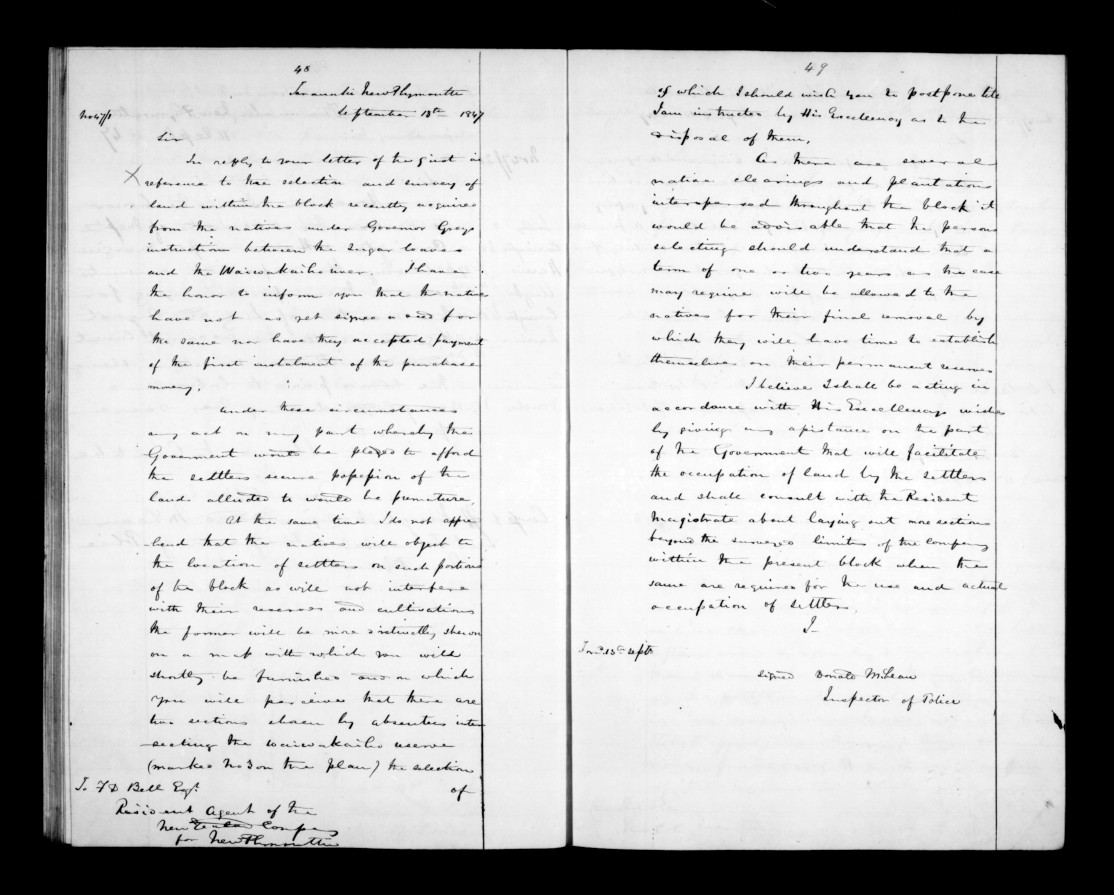 48
Taranaki New Plymouth
September 13th 1847
No 47/1
Sir
In reply to your letter of the 9 inst in
reference to the selection and survey of
land within the block recently acquired
from the natives under Governor Greys
instruction between the Sugar Loaves
and the Waiwakaiho river. I have
the honor to inform you that the natives
have not as yet signed a deed for
the same nor have they accepted payment
of the first instalment of the purchase
money.
Under these circumstances
any act on my part whereby the
Government would be pledged to afford
the settlers secure possession of the
land alluded to would be premature
At the same time I do not appre
hend that the natives will object to
the location of settlers on such portions
of the block as will not interfere
with their reserves and cultivations
the former will be more distinctly shewn
on a map with which you will
shortly be furnished and on which
you will perceive that there are
two sections chosen by absentees inter
secting the Waiwakaiho reserve
(marked No 3 on the plan) the selection
of
To F D Bell Esqr.
Resident Agent of the
New Zealand Company
for New Plymouth
49
of which I should wish you to postpone till
I am instructed by His Excellency as to the
disposal of them.
As there are several
native clearings and plantations
interspersed throughout the block it
would be advisable that the persons
selecting should understand that a
term of one or two years as the case
may require will be allowed to the
natives for their final removal by
which they will have time to establish
themselves on their permanent reserves
I believe I shall be acting in
accordance with His Excellencys wishes
by giving any assistance on the part
of the Government that will facilitate
the occupation of land by the settlers
and shall consult with the Resident
Magistrate about laying out more sections
beyond the surveyed limits of the Company
within the present block when the
same are required for the use and actual
occupation of settlers.
I
13th Septr
signed Donald McLean
Inspector of Police